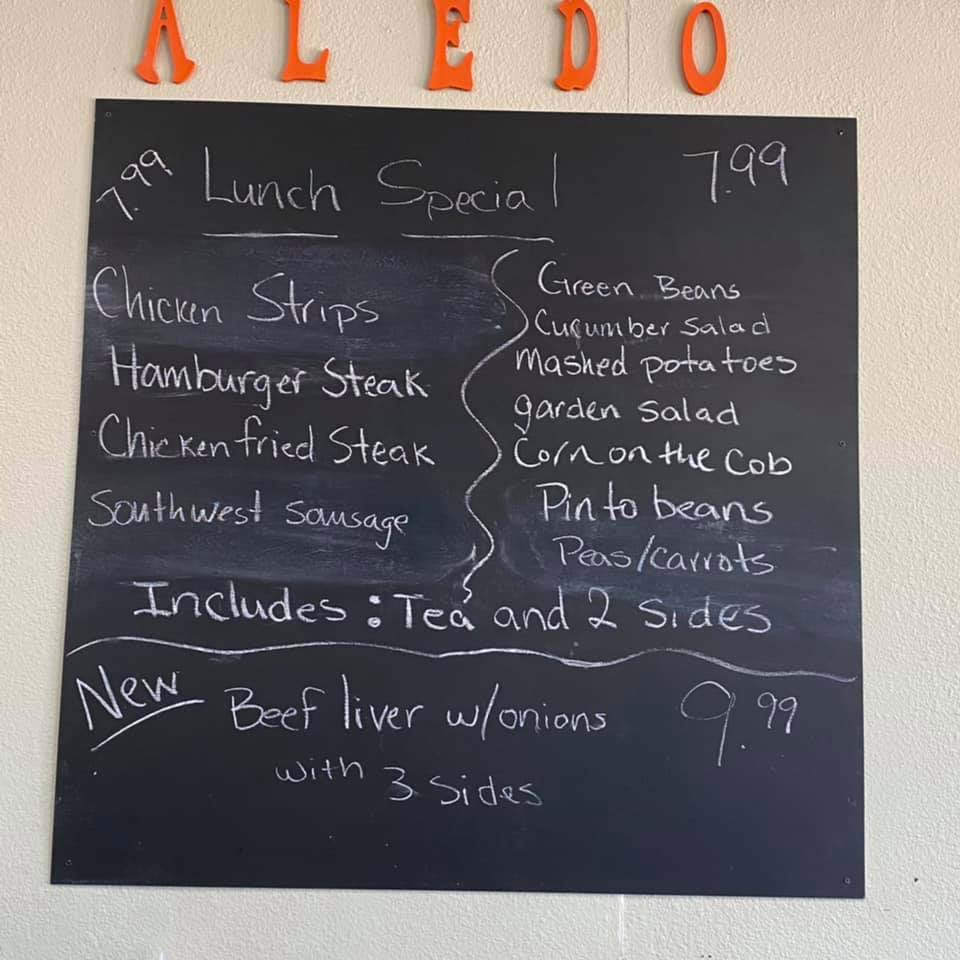 ALEDO
7.99 Lunch Special 7.99
Chicken Strips
Hamburger Steak
Chicken fried Steak
Southwest sausage
Green Beans
Cucumber Salad
Mashed potatoes
garden salad
Corn on the Cob
Pinto beans
Peas/carrots
Includes: Tea and 2 Sides
New Beef liver w/onions 9.99
with 3 sides